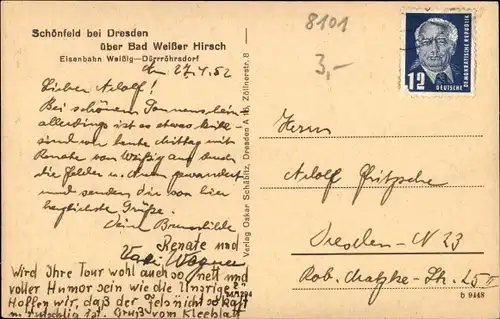 Schönfeld bei Dresden
über Bad Weißer Hirsch
Eisenbahn Weißig—Dürrröhrsdorf
8101
3,-
12
DEUTSCHE
DEMOKRATISCHE REPUBLIK
27.4.52
Lieber Adolf!
Bei schönem Sonnenschein
allerdings ist es etwas kühl -
sind wir heute Mittag mit
Renate von Weißig aus durch
die Felder u. gewandert
und senden dir von hier
herzlichste Grüße.
Deine Brunhilde
Renate und
Wird Ihre Tour wohl auch so nett und
voller Humor sein wie die Unsrige?
Hoffen wir, daß der nicht so
rutschig ist. Gruß vom Kleeblatt
Verlag Oskar Schäbitz, Dresden A 16, Zöllnerstr. 8
Herrn
Adolf Fritzsche
Dresden - N 23
Rob. Matzke - Str. 25
b 9448